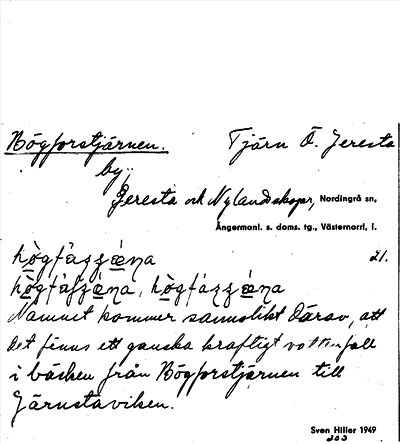 Högforstjärnen. Tjärn Ö. Jeresta
by.
Jeresta och Nylandskogar, Nordingrå sn,
Ångermanl. s. doms. tg., Västernorrl, l.
21.
Namnet kommer sannolikt därav, att
det finns ett ganska kraftigt vattenfall
i bäcken från Högforstjärnen till
Järnstaviken.
Sven Hiller 1949
303